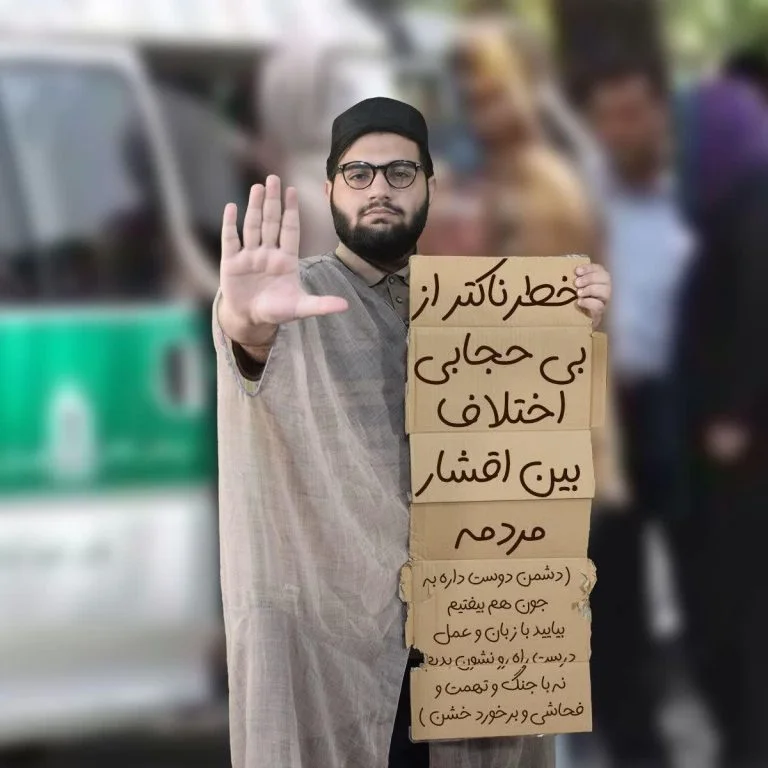 خطرناکتر از
بی حجابی
اختلاف
بین اقشار
مردمه
(دشمن دوست داره به
جون هم بیفتیم
بیایید با زبان و عمل
درست راه رو نشون بدیم
نه با جنگ و تهمت و
فحاشی و برخورد خشن)